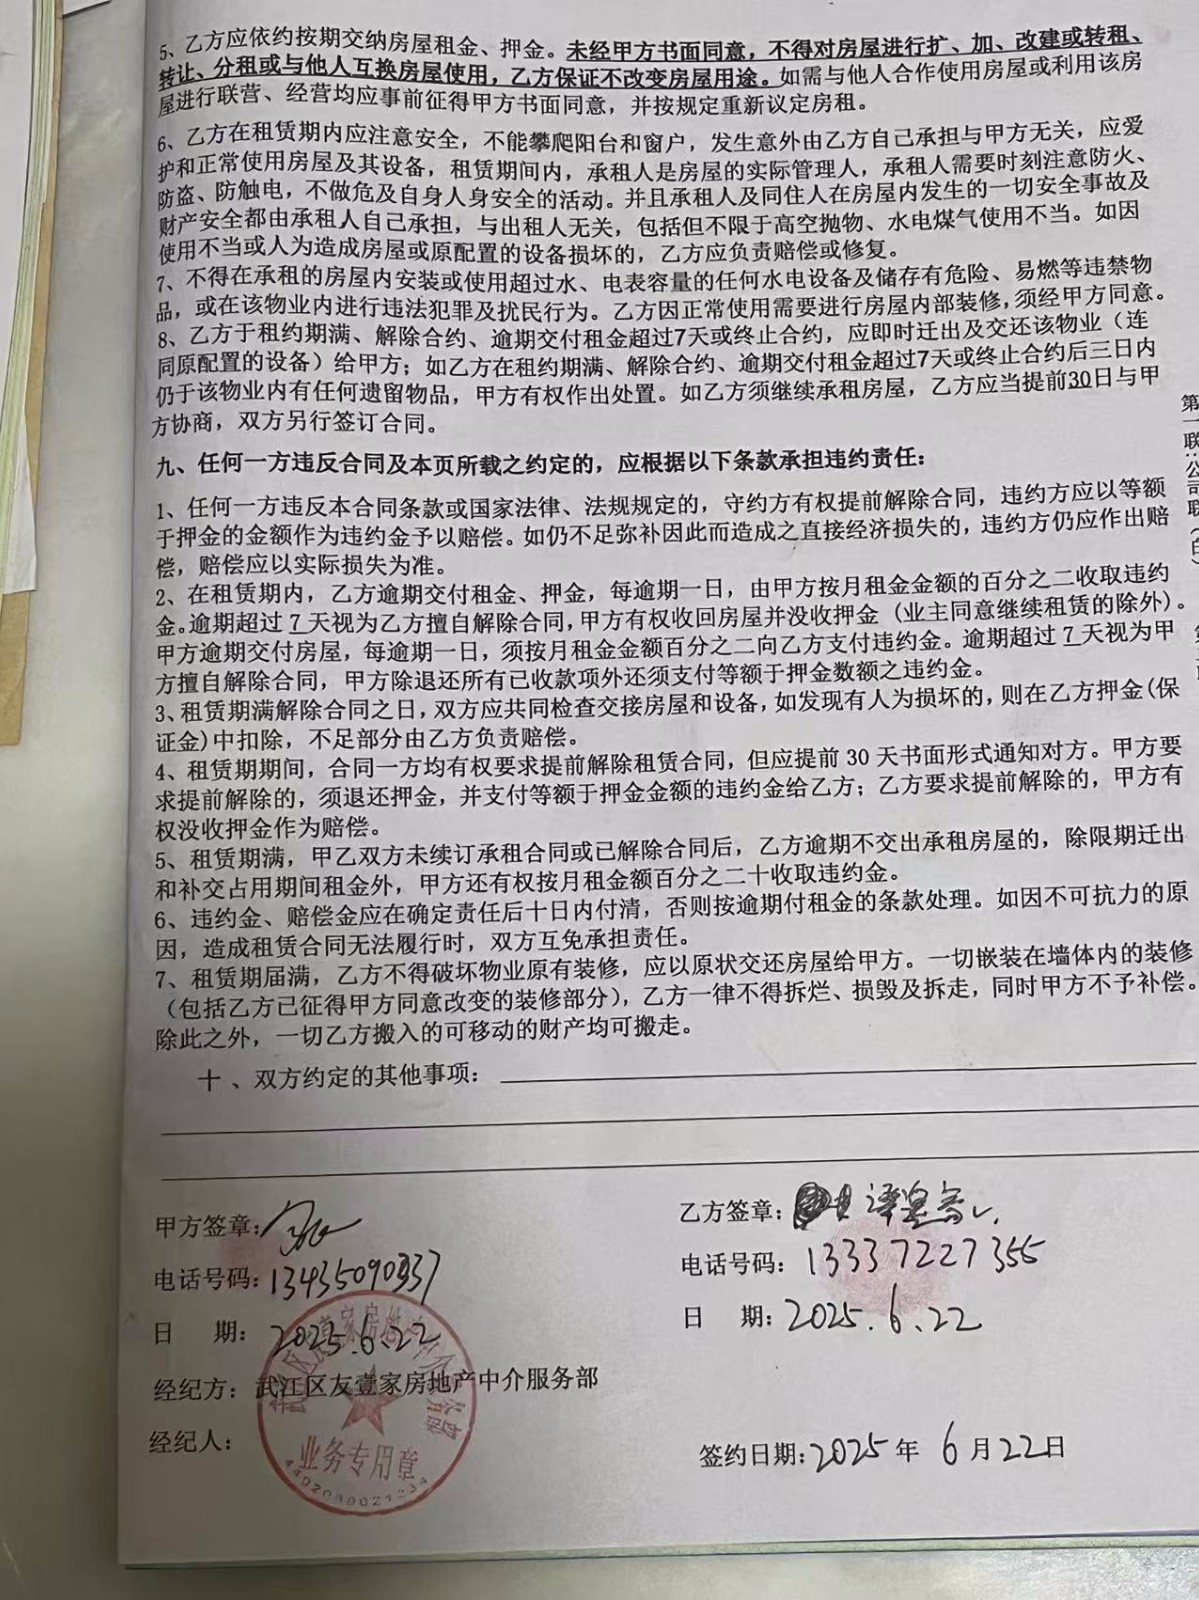 5、乙方应依约按期交纳房屋租金、押金。未经甲方书面同意，不得对房屋进行扩、加、改建或转租、
转让、分租或与他人互换房屋使用，乙方保证不改变房屋用途。如需与他人合作使用房屋或利用该房
屋进行联营、经营均应事前征得甲方书面同意，并按规定重新议定房租。
6、乙方在租赁期内应注意安全，不能攀爬阳台和窗户，发生意外由乙方自己承担与甲方无关，应爱
护和正常使用房屋及其设备，租赁期间内，承租人是房屋的实际管理人，承租人需要时刻注意防火、
防盗、防触电，不做危及自身人身安全的活动。并且承租人及同住人在房屋内发生的一切安全事故及
财产安全都由承租人自己承担，与出租人无关，包括但不限于高空抛物、水电煤气使用不当。如因
使用不当或人为造成房屋或原配置的设备损坏的，乙方应负责赔偿或修复。
7、不得在承租的房屋内安装或使用超过水、电表容量的任何水电设备及储存有危险、易燃等违禁物
品，或在该物业内进行违法犯罪及扰民行为。乙方因正常使用需要进行房屋内部装修，须经甲方同意。
8、乙方于租约期满、解除合约、逾期交付租金超过7天或终止合约，应即时迁出及交还该物业（连
同原配置的设备）给甲方；如乙方在租约期满、解除合约、逾期交付租金超过7天或终止合约后三日内
仍于该物业内有任何遗留物品，甲方有权作出处置。如乙方须继续承租房屋，乙方应当提前30日与甲
方协商，双方另行签订合同。
九、任何一方违反合同及本页所载之约定的，应根据以下条款承担违约责任：
1、任何一方违反本合同条款或国家法律、法规规定的，守约方有权提前解除合同，违约方应以等额
于押金的金额作为违约金予以赔偿。如仍不足弥补因此而造成之直接经济损失的，违约方仍应作出赔
偿，赔偿应以实际损失为准。
2、在租赁期内，乙方逾期交付租金、押金，每逾期一日，由甲方按月租金金额的百分之二收取违约
金。逾期超过 7 天视为乙方擅自解除合同，甲方有权收回房屋并没收押金（业主同意继续租赁的除外）。
甲方逾期交付房屋，每逾期一日，须按月租金金额百分之二向乙方支付违约金。逾期超过 7 天视为甲
方擅自解除合同，甲方除退还所有已收款项外还须支付等额于押金数额之违约金。
3、租赁期满解除合同之日，双方应共同检查交接房屋和设备，如发现有人为损坏的，则在乙方押金(保
证金)中扣除，不足部分由乙方负责赔偿。
4、租赁期期间，合同一方均有权要求提前解除租赁合同，但应提前 30 天书面形式通知对方。甲方要
求提前解除的，须退还押金，并支付等额于押金金额的违约金给乙方；乙方要求提前解除的，甲方有
权没收押金作为赔偿。
5、租赁期满，甲乙双方未续订承租合同或已解除合同后，乙方逾期不交出承租房屋的，除限期迁出
和补交占用期间租金外，甲方还有权按月租金额百分之二十收取违约金。
6、违约金、赔偿金应在确定责任后十日内付清，否则按逾期付租金的条款处理。如因不可抗力的原
因，造成租赁合同无法履行时，双方互免承担责任。
7、租赁期届满，乙方不得破坏物业原有装修，应以原状交还房屋给甲方。一切嵌装在墙体内的装修
（包括乙方已征得甲方同意改变的装修部分），乙方一律不得拆烂、损毁及拆走，同时甲方不予补偿。
除此之外，一切乙方搬入的可移动的财产均可搬走。
十 、双方约定的其他事项：
甲方签章：
电话号码：13435090937
日 期：2025.6.22
经纪方：武江区友壹家房地产中介服务部
经纪人：
业务专用章
乙方签章：
电话号码：13337227355
日 期：2025.6.22
签约日期：2025 年 6 月 22 日
第一联：公司联（白）